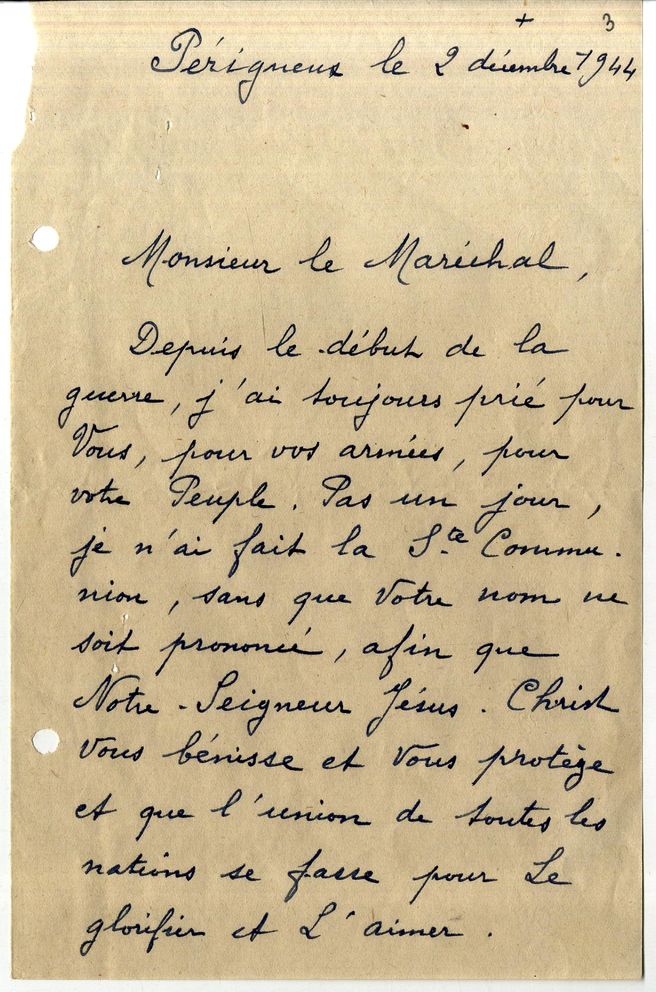 + 3
Périgueux le 2 décembre 1944
Monsieur le Maréchal,
Depuis le début de la
guerre, j'ai toujours prié pour
Vous, pour vos armées, pour
votre Peuple. Pas un jour,
je n'ai fait la Ste Commu-
nion, sans que Votre nom ne
soit prononcé, afin que
Notre-Seigneur Jésus-Christ
Vous bénisse et Vous protège
et que l'union de toutes les
nations se fasse pour Le
glorifier et L'aimer.